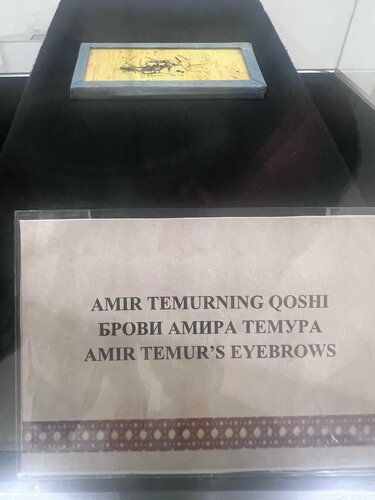 AMIR TEMURNING QOSHI
БРОВИ АМИРА ТЕМУРА
AMIR TEMUR’S EYEBROWS